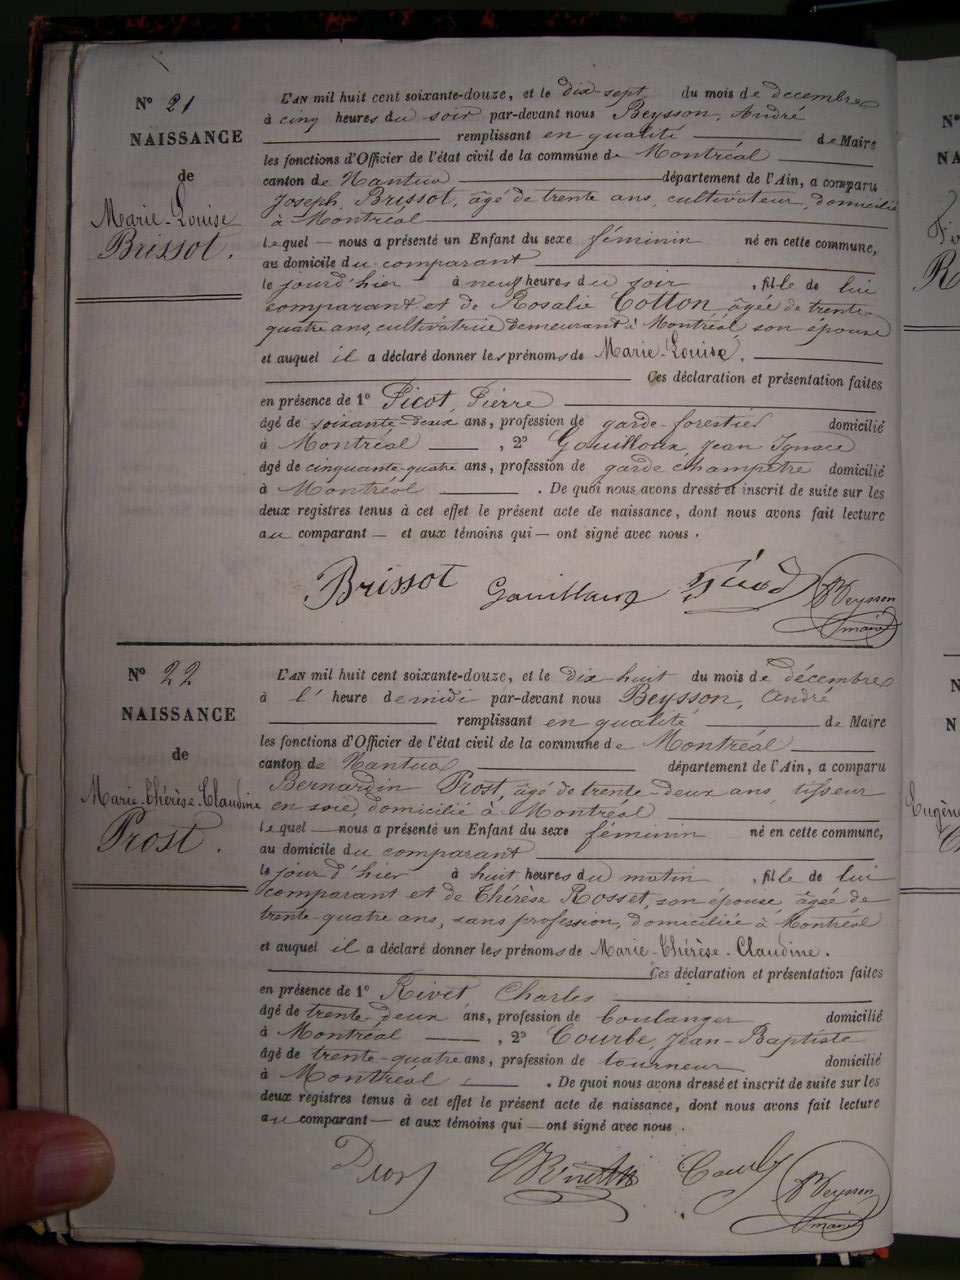 N° 21
NAISSANCE
de
Marie-Louise
Brissot.
L'AN mil huit cent soixante-douze, et le dix-sept du mois de décembre
à cinq heures du soir par-devant nous Beysson, André
remplissant en qualité de Maire
les fonctions d'Officier de l'état civil de la commune de Montréal
canton de Nantua département de l'Ain, a comparu
Joseph Brissot, âgé de trente ans, cultivateur, domicilié
à Montréal
lequel — nous a présenté un Enfant du sexe féminin né en cette commune,
au domicile du comparant
le jour d'hier à neuf heures du soir, fille de lui
comparant et de Rosalie Cotton, âgée de trente-
quatre ans, cultivatrice demeurant à Montréal son épouse
et auquel il a déclaré donner les prénoms de Marie-Louise.
Ces déclaration et présentation faites
en présence de 1° Picot, Pierre
âgé de soixante-deux ans, profession de garde-forestier domicilié
à Montréal, 2° Gouilloux, Jean Ignace
âgé de cinquante-quatre ans, profession de garde champêtre domicilié
à Montréal. De quoi nous avons dressé et inscrit de suite sur les
deux registres tenus à cet effet le présent acte de naissance, dont nous avons fait lecture
au comparant — et aux témoins qui — ont signé avec nous.
Brissot Gouilloux Picod Beysson
maire
N° 22
NAISSANCE
de
Marie-Thérèse-Claudine
Prost.
L'AN mil huit cent soixante-douze, et le dix huit du mois de décembre
à l' heure de midi par-devant nous Beysson, André
remplissant en qualité de Maire
les fonctions d'Officier de l'état civil de la commune de Montréal
canton de Nantua département de l'Ain, a comparu
Bernardin Prost, âgé de trente-deux ans, tisseur
en soie, domicilié à Montréal
lequel — nous a présenté un Enfant du sexe féminin né en cette commune,
au domicile du comparant
le jour d'hier à huit heures du matin, fille de lui
comparant et de Thérèse Rosset, son épouse, âgée de
trente-quatre ans, sans profession, domiciliée à Montréal
et auquel il a déclaré donner les prénoms de Marie-Thérèse-Claudine.
Ces déclaration et présentation faites
en présence de 1° Rivet Charles
âgé de trente-deux ans, profession de boulanger domicilié
à Montréal, 2° Courbe, Jean-Baptiste
âgé de trente-quatre ans, profession de tourneur domicilié
à Montréal. De quoi nous avons dressé et inscrit de suite sur les
deux registres tenus à cet effet le présent acte de naissance, dont nous avons fait lecture
au comparant — et aux témoins qui — ont signé avec nous.
Prost Courbe Beysson
maire